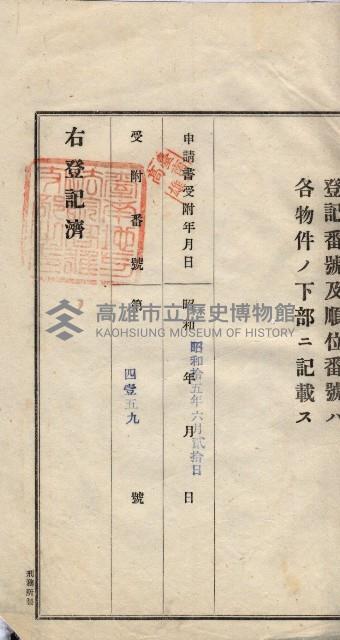 登記番號及順位番號ハ
各物件ノ下部ニ記載ス
申請書受附年月日 昭和 年 月 日
昭和拾五年六月貳拾日
受附番號 第 號
四壹五九
右登記濟
高雄市立歷史博物館
KAOHSIUNG MUSEUM OF HISTORY
刑務所製